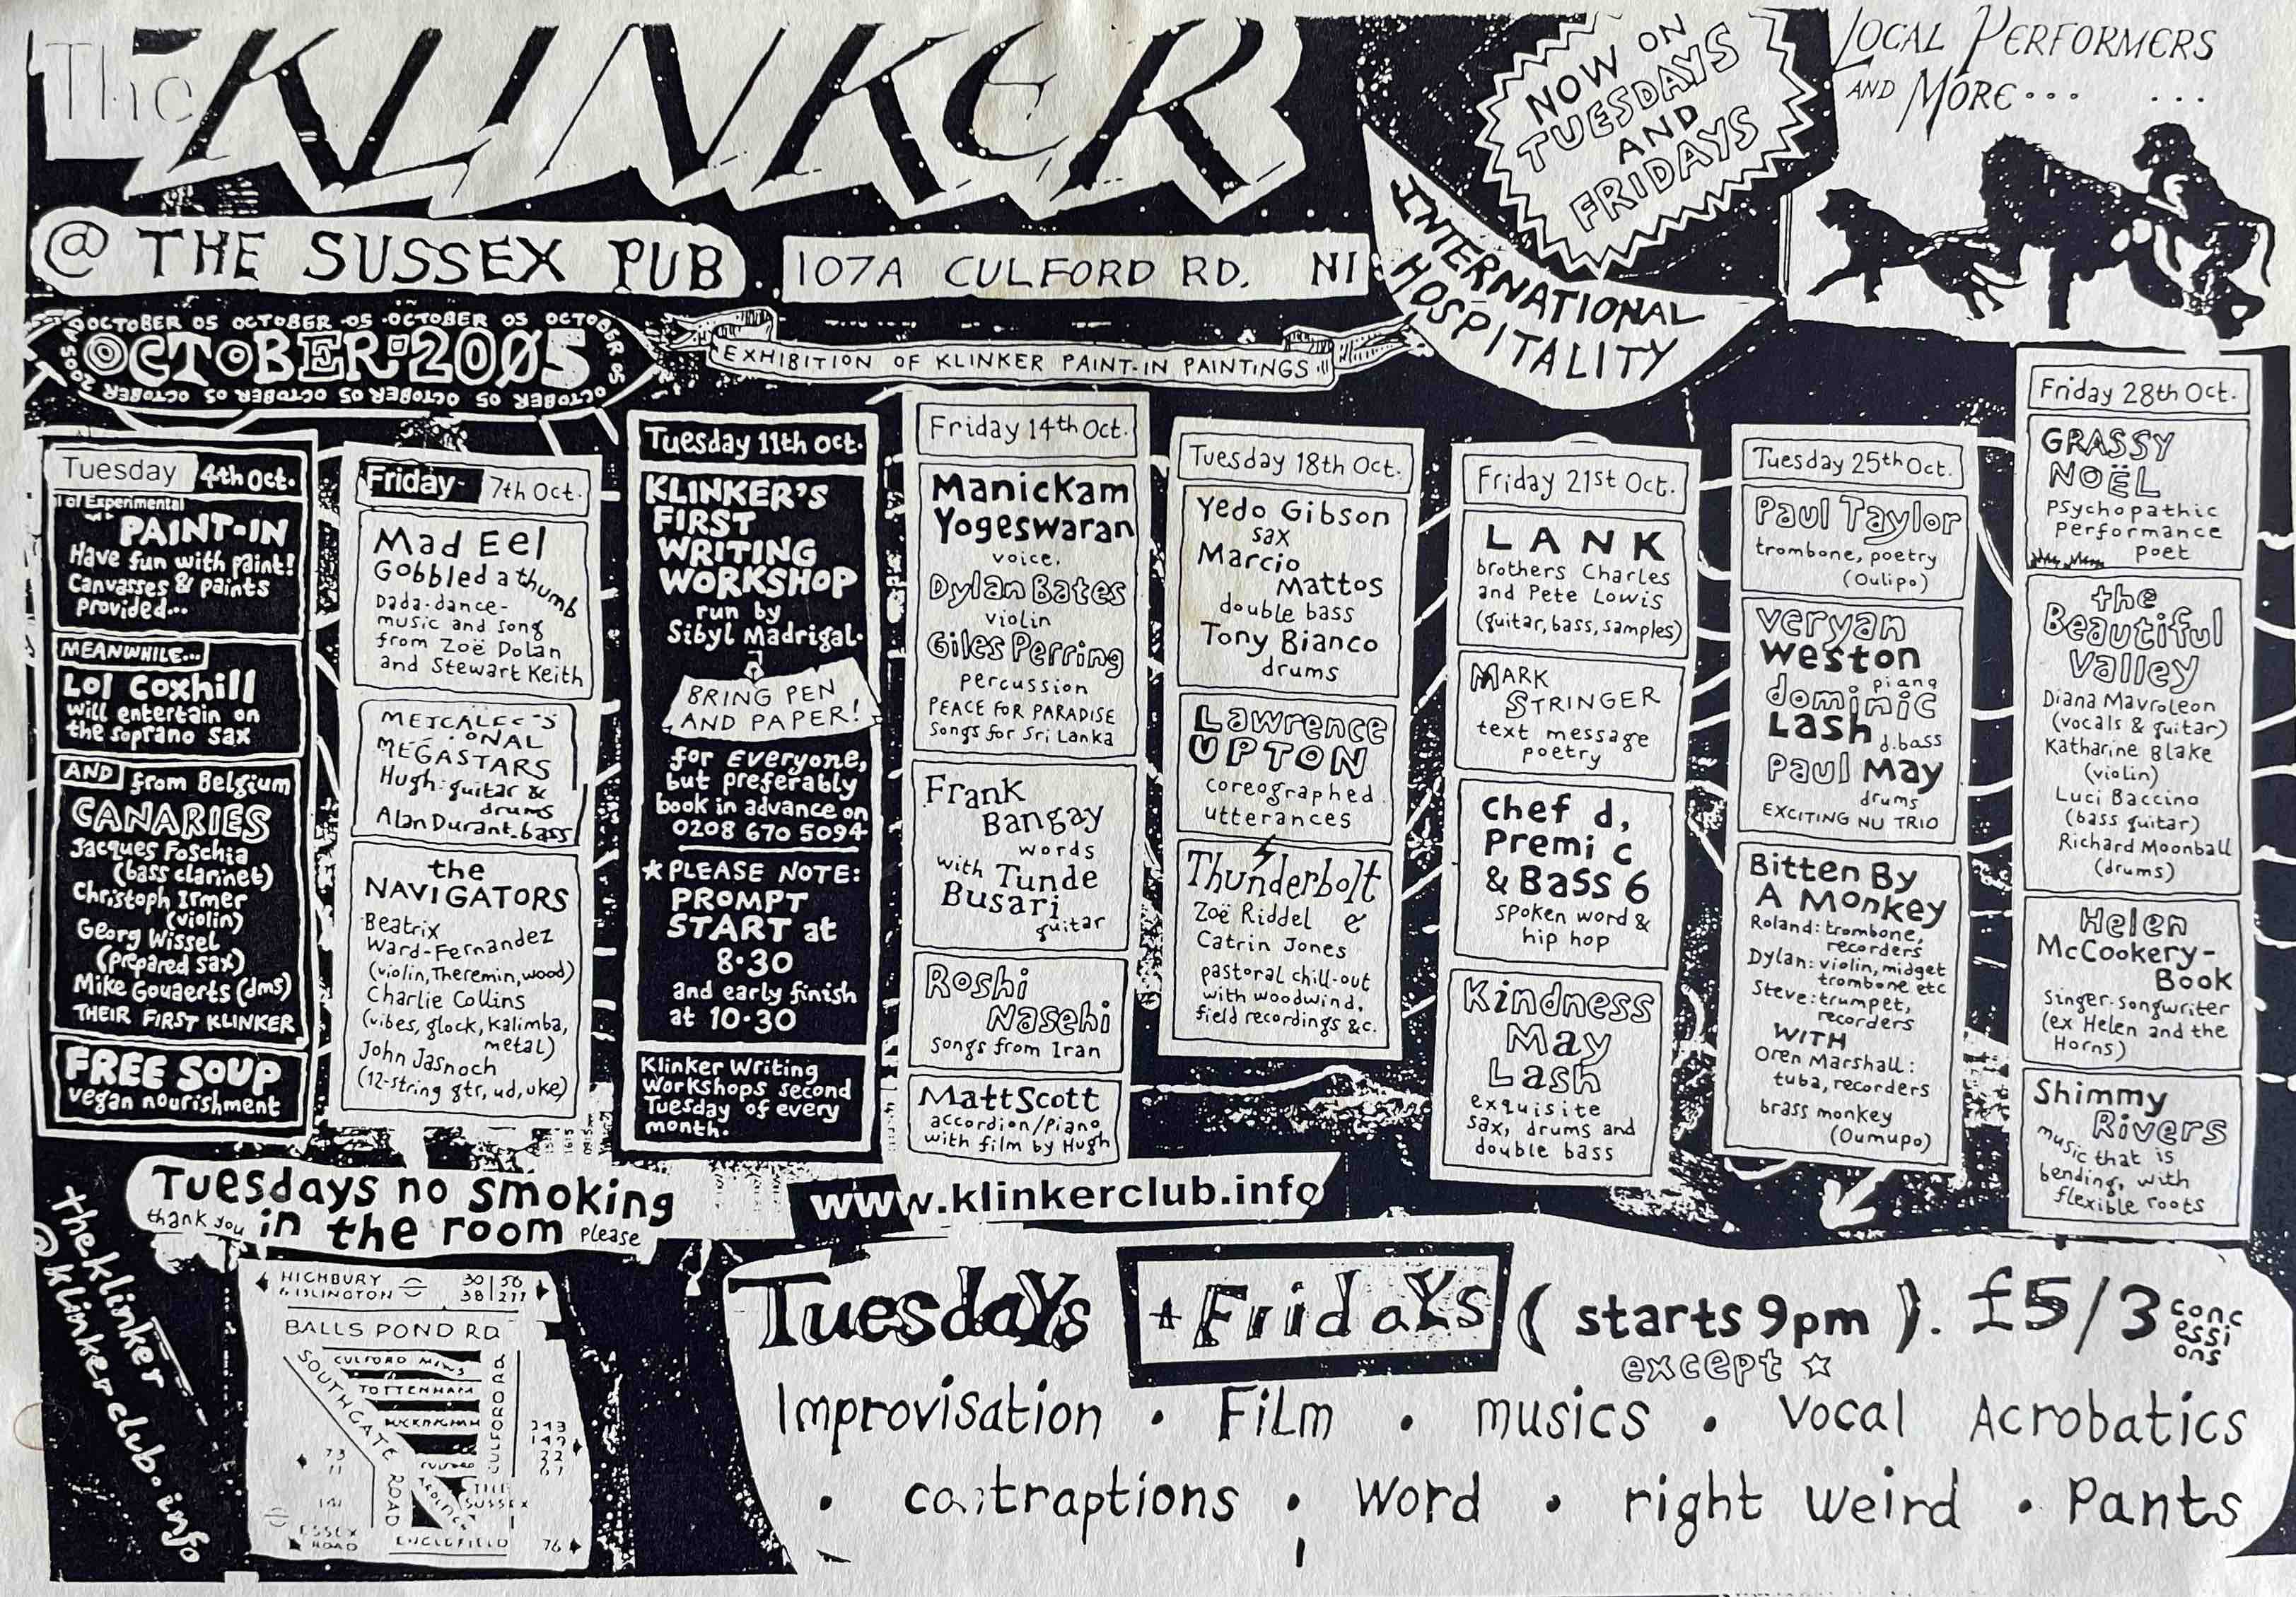 The KLINKER
@ THE SUSSEX PUB
107A CULFORD RD. N1
NOW ON
TUESDAYS
AND
FRIDAYS
INTERNATIONAL
HOSPITALITY
LOCAL PERFORMERS
AND MORE... ...
OCTOBER 05 OCTOBER 05 OCTOBER 05 OCTOBER 05
OCTOBER 2005
OCTOBER 05 OCTOBER 05 OCTOBER 05 OCTOBER 2005
EXHIBITION OF KLINKER PAINT-IN PAINTINGS
Tuesday 4th Oct.
Experimental
PAINT-IN
Have fun with paint!
Canvasses & paints
provided...
MEANWHILE...
Lol Coxhill
will entertain on
the soprano sax
AND from Belgium
CANARIES
Jacques Foschia
(bass clarinet)
Christoph Irmer
(violin)
Georg Wissel
(prepared sax)
Mike Gouaerts (dms)
THEIR FIRST KLINKER
FREE SOUP
vegan nourishment
Friday 7th Oct.
Mad Eel
Gobbled a thumb
Dada-dance-
music and song
from Zoë Dolan
and Stewart Keith
MEGASTARS
Hugh: guitar &
drums
Alan Durant-bass
the
NAVIGATORS
Beatrix
Ward-Fernandez
(violin, Theremin, wood)
Charlie Collins
(vibes, glock, kalimba,
metal)
John Jasnoch
(12-string gtr, ud, uke)
Tuesday 11th Oct.
KLINKER'S
FIRST
WRITING
WORKSHOP
run by
Sibyl Madrigal.
BRING PEN
AND PAPER!
for everyone,
but preferably
book in advance on
0208 670 5094
*PLEASE NOTE:
PROMPT
START at
8.30
and early finish
at 10.30
Klinker Writing
Workshops second
Tuesday of every
month.
Friday 14th Oct.
Manickam
Yogeswaran
voice.
Dylan Bates
violin
Giles Perring
percussion
PEACE FOR PARADISE
Songs for Sri Lanka
Frank
Bangay
words
with Tunde
Busari
guitar
Roshi
Nasehi
songs from Iran
Matt Scott
accordion/piano
with film by Hugh
Tuesday 18th Oct.
Yedo Gibson
sax
Marcio
Mattos
double bass
Tony Bianco
drums
Lawrence
UPTON
coreographed
utterances
Thunderbolt
Zoë Riddel &
Catrin Jones
pastoral chill-out
with woodwind,
field recordings &c.
Friday 21st Oct.
LANK
brothers Charles
and Pete Lowis
(guitar, bass, samples)
MARK
STRINGER
text message
poetry
Chef d,
Premi c
& Bass 6
spoken word &
hip hop
Kindness
May
Lash
exquisite
sax, drums and
double bass
Tuesday 25th Oct.
Paul Taylor
trombone, poetry
(Oulipo)
veryan
weston
piano
dominic
Lash d.bass
Paul May
drums
EXCITING NU TRIO
Bitten By
A Monkey
Roland: trombone,
recorders
Dylan: violin, midget
trombone etc
Steve: trumpet,
recorders
WITH
Oren Marshall:
tuba, recorders
brass monkey
(Oumupo)
Friday 28th Oct.
GRASSY
NOËL
Psychopathic
performance
poet
the
Beautiful
Valley
Diana Mavroleon
(vocals & guitar)
Katharine Blake
(violin)
Luci Baccino
(bass guitar)
Richard Moonball
(drums)
Helen
McCookery-
Book
Singer-songwriter
(ex Helen and the
Horns)
Shimmy
Rivers
music that is
bending, with
flexible roots
Tuesdays no smoking
thank you in the room please
www.klinkerclub.info
theklinker
@klinkerclub.info
HIGHBURY
& ISLINGTON
30 | 56
38 | 277
BALLS POND RD
CULFORD MEWS
TOTTENHAM
BUCKINGHAM
SOUTHGATE ROAD
CULFORD RD
THE
SUSSEX
ESSEX
ROAD
ENGLEFIELD
76
Tuesdays + Fridays (starts 9pm). £5/3 concessions
except ☆
Improvisation • Film • musics • Vocal Acrobatics
• contraptions • Word • right weird • Pants